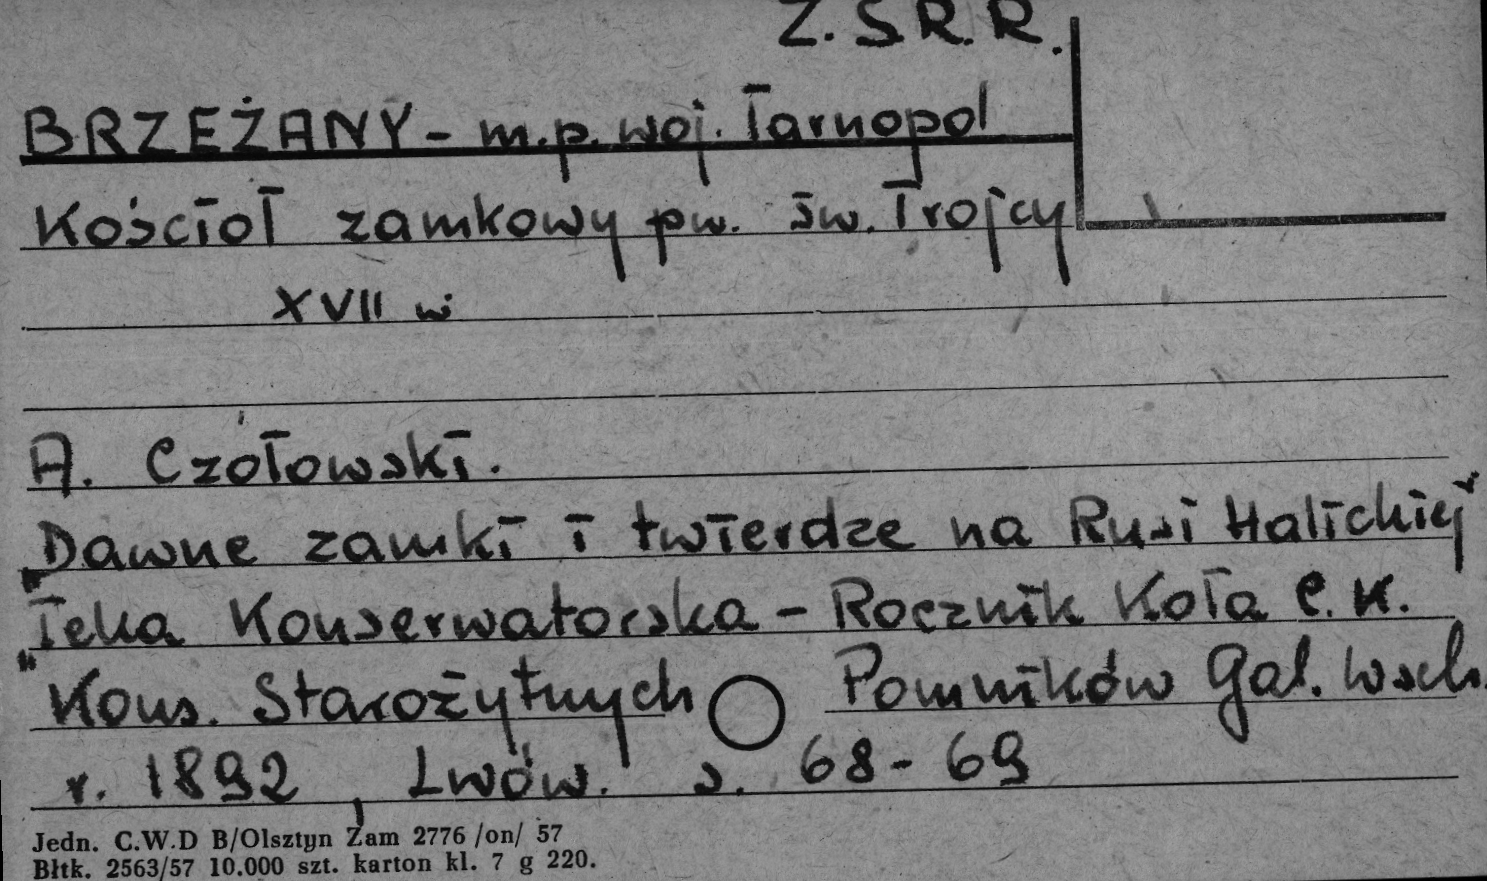 Z.S.R.R.
BRZEŻANY - m.p. woj. Tarnopol
Kościoł zamkowy pw. św. Trojcy
XVII w
A. Czołowski.
"Dawne zamki i twierdze na Rusi Halickiej"
"Teka Konserwatorska - Rocznik Koła C.K.
Kons. Starożytnych Pomników Gal. Wsch.
r. 1892, Lwów. s. 68-69
Jedn. C.W.D B/Olsztyn Zam 2776 /on/ 57
Błtk. 2563/57 10.000 szt. karton kl. 7 g 220.